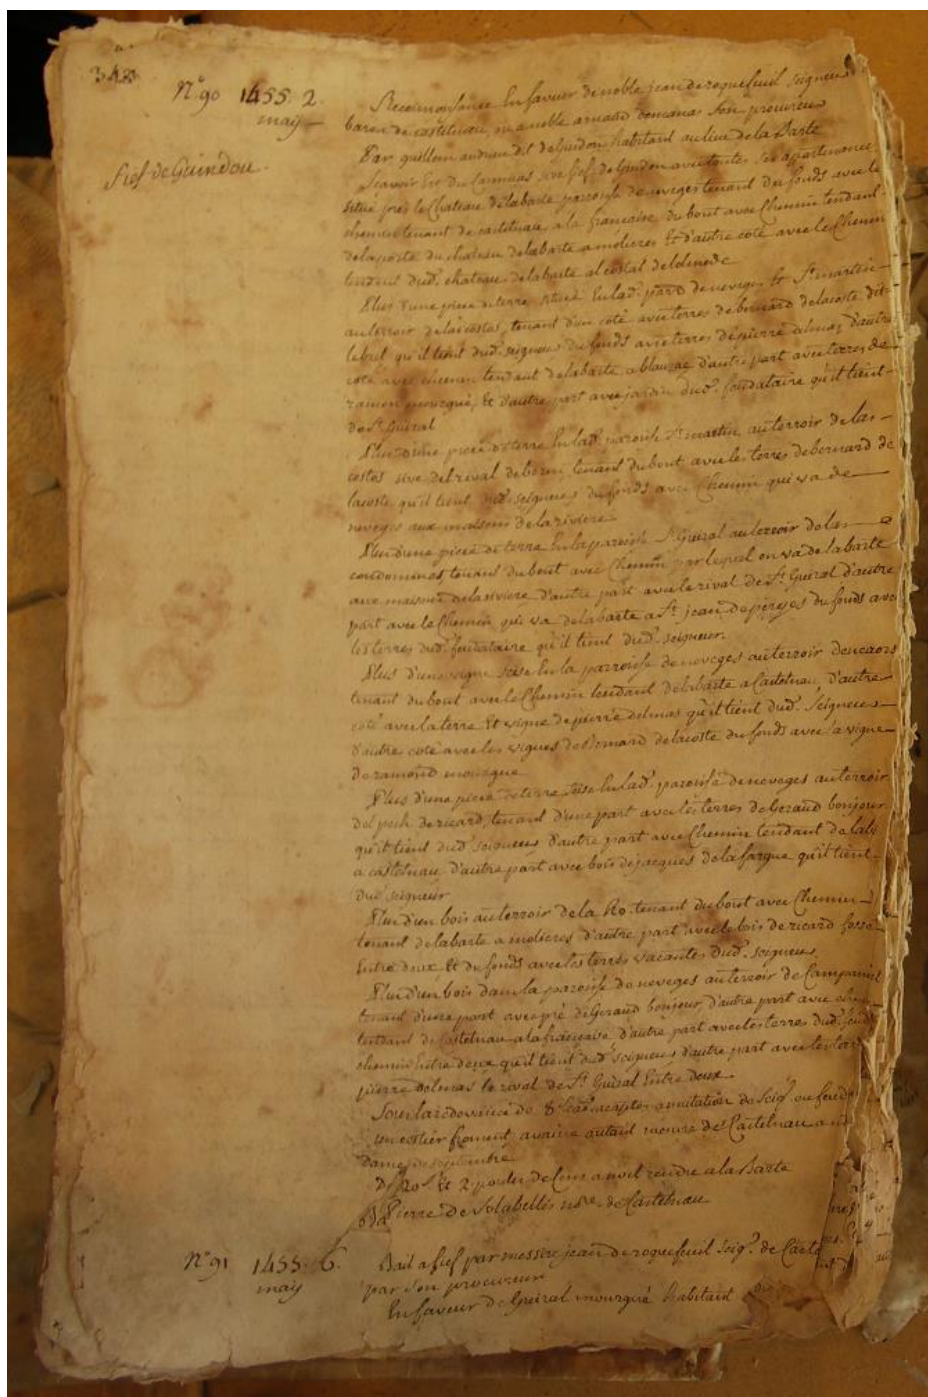 348
N.° 90 1455. 2. may
fief de Guindou.
Reconnoissance En faveur de noble jean de roquefeuil seigneur
baron de castelnau, ou a noble arnaud son procureur
Par guillem andrieu dit de Guidon habitant au lieu de la Barte
Scavoir Est du Cammas sive fief de Guidon avec toutes ses apartenances
situé prés le Chateau de labarte parroisse de neveges tenant du fonds avec le
chemin tenant de castelnau a la française du bout avec Chemin tendant
de la porte du chateau de labarte a molieres Et d'autre coté avec le Chemin
tendant dud. chateau de labarte al costal de
Plus d'une piece de terre située En lad. parr.e de neveges Et St. martin
au terroir de las costes, tenant d'un coté avec terres de bernard de lacoste dit
lebret qu'il tient dud. seigneur du fonds avec terres de pierre delmas d'autre
coté avec chemin tendant de labarte a blauzac d'autre part avec terres de
ramon mourguié, Et d'autre part avec jardin dud. feudataire qu'il tient
de St. Guiral
Plus d'une piece de terre En lad. paroisse St. martin au terroir de las
costes sive del rival de born tenant du bout avec les terres de bernard de
lacoste qu'il tient dud. seigneur du fonds avec Chemin qui va de
neveges aux maisons de la riviere
Plus d'une piece de terre En la paroisse St. Guiral au terroir de las
condomines, tenant du bout avec Chemin par lequel on va de labarte
aux maisons de la riviere d'autre part avec le rival de St. Guiral d'autre
part avec le Chemin qui va de labarte a St. jean de du fonds avec
les terres dud. feudataire qu'il tient dud. seigneur.
Plus d'une vigne scise En la parroisse de neveges au terroir
tenant du bout avec le Chemin tendant de labarte a Castelnau, d'autre
coté avec la terre Et vigne de pierre delmas qu'il tient dud. Seigneur
d'autre coté avec les vignes de Bernard de lacoste du fonds avec la vigne
de ramond mourgue
Plus d'une piece de terre scise En lad. paroisse de neveges au terroir
del pech de ricard, tenant d'une part avec les terres de Geraud bonjour
qu'il tient dud. seigneur d'autre part avec Chemin tendant de lab
a castelnau d'autre part avec bois de jacques de lafargue qu'il tient
dud. seigneur
Plus d'un bois au terroir de la Ro. tenant du bout avec Chemin
tenant de labarte a molieres d'autre part avec le bois de ricard fosse
Entre deux Et du fonds avec les terres vacantes dud. seigneur
Plus d'un bois dans la paroisse de neveges au terroir de
tenant d'une part avec pré de Geraud bonjour, d'autre part avec chemin
tendant de Castelnau a la française d'autre part avec les terres dud. feud
chemin Entre deux qu'il tient dud. seigneur d'autre part avec les terres
pierre delmas le rival de St. Guiral Entre deux
Sous la redevance de 8 s. caors acaptes a mutation de seig. ou feud
un cestier froment avoine autant mesure de Castelnau a
Dame de septembre
De 20 s. Et 2 poules de Cens annuel rendre a la Barte
Pierre de Solabelles no.re de Castelnau
N.° 91 1455. 6. may
Bail a fief par messire jean de roquefeuil seig.r de Castel
par son procureur
En faveur de Guiral mourguié habitant